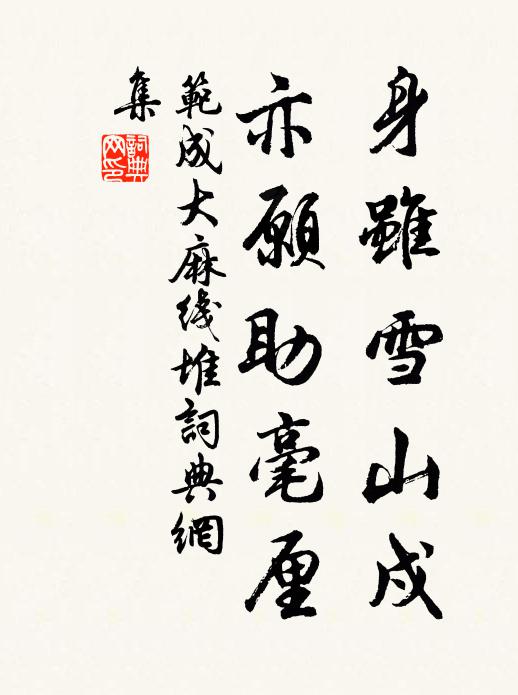 身雖雪山戍
亦願助毫厘
範成大麻线堆詞典網
集
詞典
网印